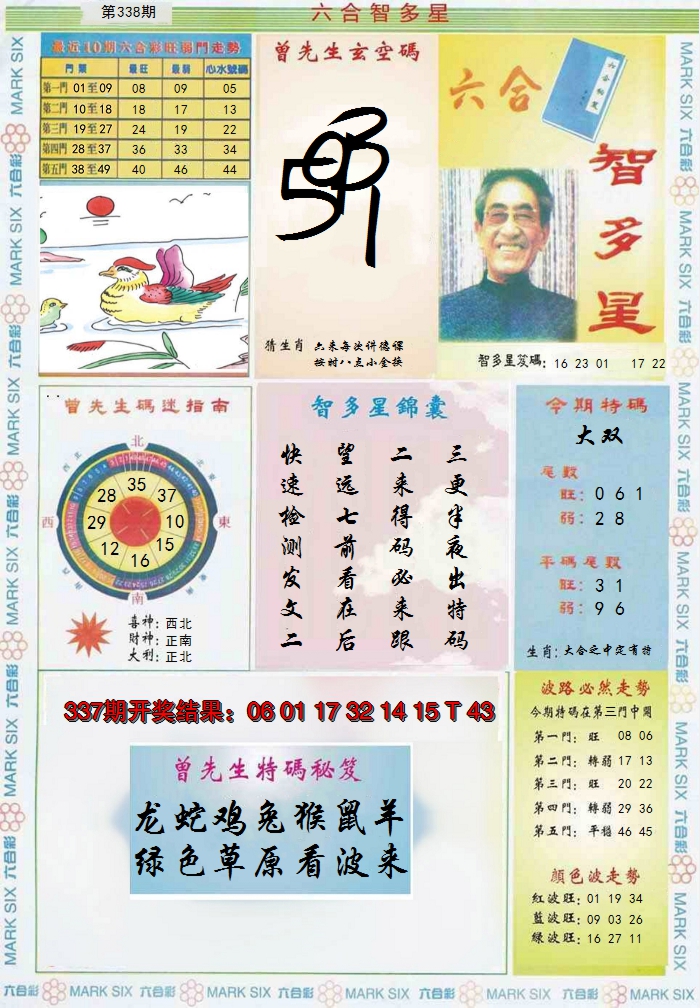 第338期
六合智多星
最近10期六合彩旺弱門走勢
門票 最旺 最弱 心水號碼
第一門 01至09 08 09 05
第二門 10至18 18 17 13
第三門 19至27 24 19 22
第四門 28至37 36 33 34
第五門 38至49 40 46 44
曾先生玄空碼
猜生肖 六来每次讲德课
按时八点小金接
六合
智多星
智多星笈碼：16 23 01 17 22
曾先生碼迷指南
北
西
東
南
35
28 37
29 10
12 15
16
喜神：西北
財神：正南
大利：正北
智多星錦囊
三更半夜出特码
二来得码必来跟
望远七前看在后
快速检测发文二
今期特碼
大双
尾數
旺：0 6 1
弱：2 8
平碼尾數
旺：3 1
弱：9 6
生肖：大合之中定有特
337期开奖结果：06 01 17 32 14 15 T 43
曾先生特碼秘笈
龙蛇鸡兔猴鼠羊
绿色草原看波来
波路必然走勢
今期特碼在第三門中開
第一門：旺 08 06
第二門：轉弱 17 13
第三門：旺 20 22
第四門：轉弱 29 36
第五門：平穩 46 45
顏色波走勢
紅波旺：01 19 34
藍波旺：09 03 26
綠波旺：16 27 11
六合彩 MARK SIX